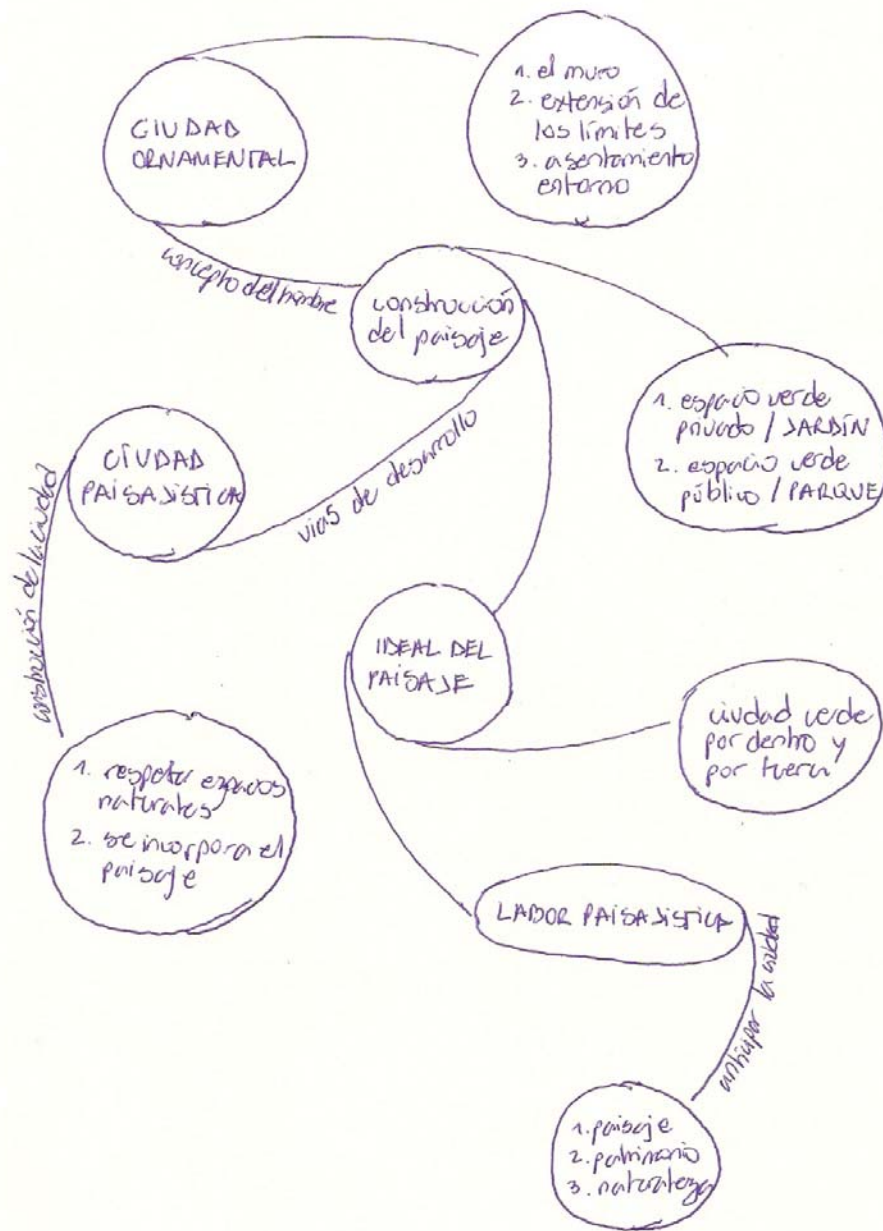 CIUDAD
ORNAMENTAL
1. el muro
2. extensión de
los límites
3. asentamiento
entorno
concepto del hombre
construcción
del paisaje
1. espacio verde
privado / JARDÍN
2. espacio verde
público / PARQUE
CIUDAD
PAISAJISTICA
vias de desarrollo
construcción de la ciudad
IDEAL DEL
PAISAJE
ciudad verde
por dentro y
por fuera
1. respetar espacios
naturales
2. se incorpora el
paisaje
LABOR PAISAJISTICA
anticipar la ciudad
1. paisaje
2. patrimonio
3. naturaleza